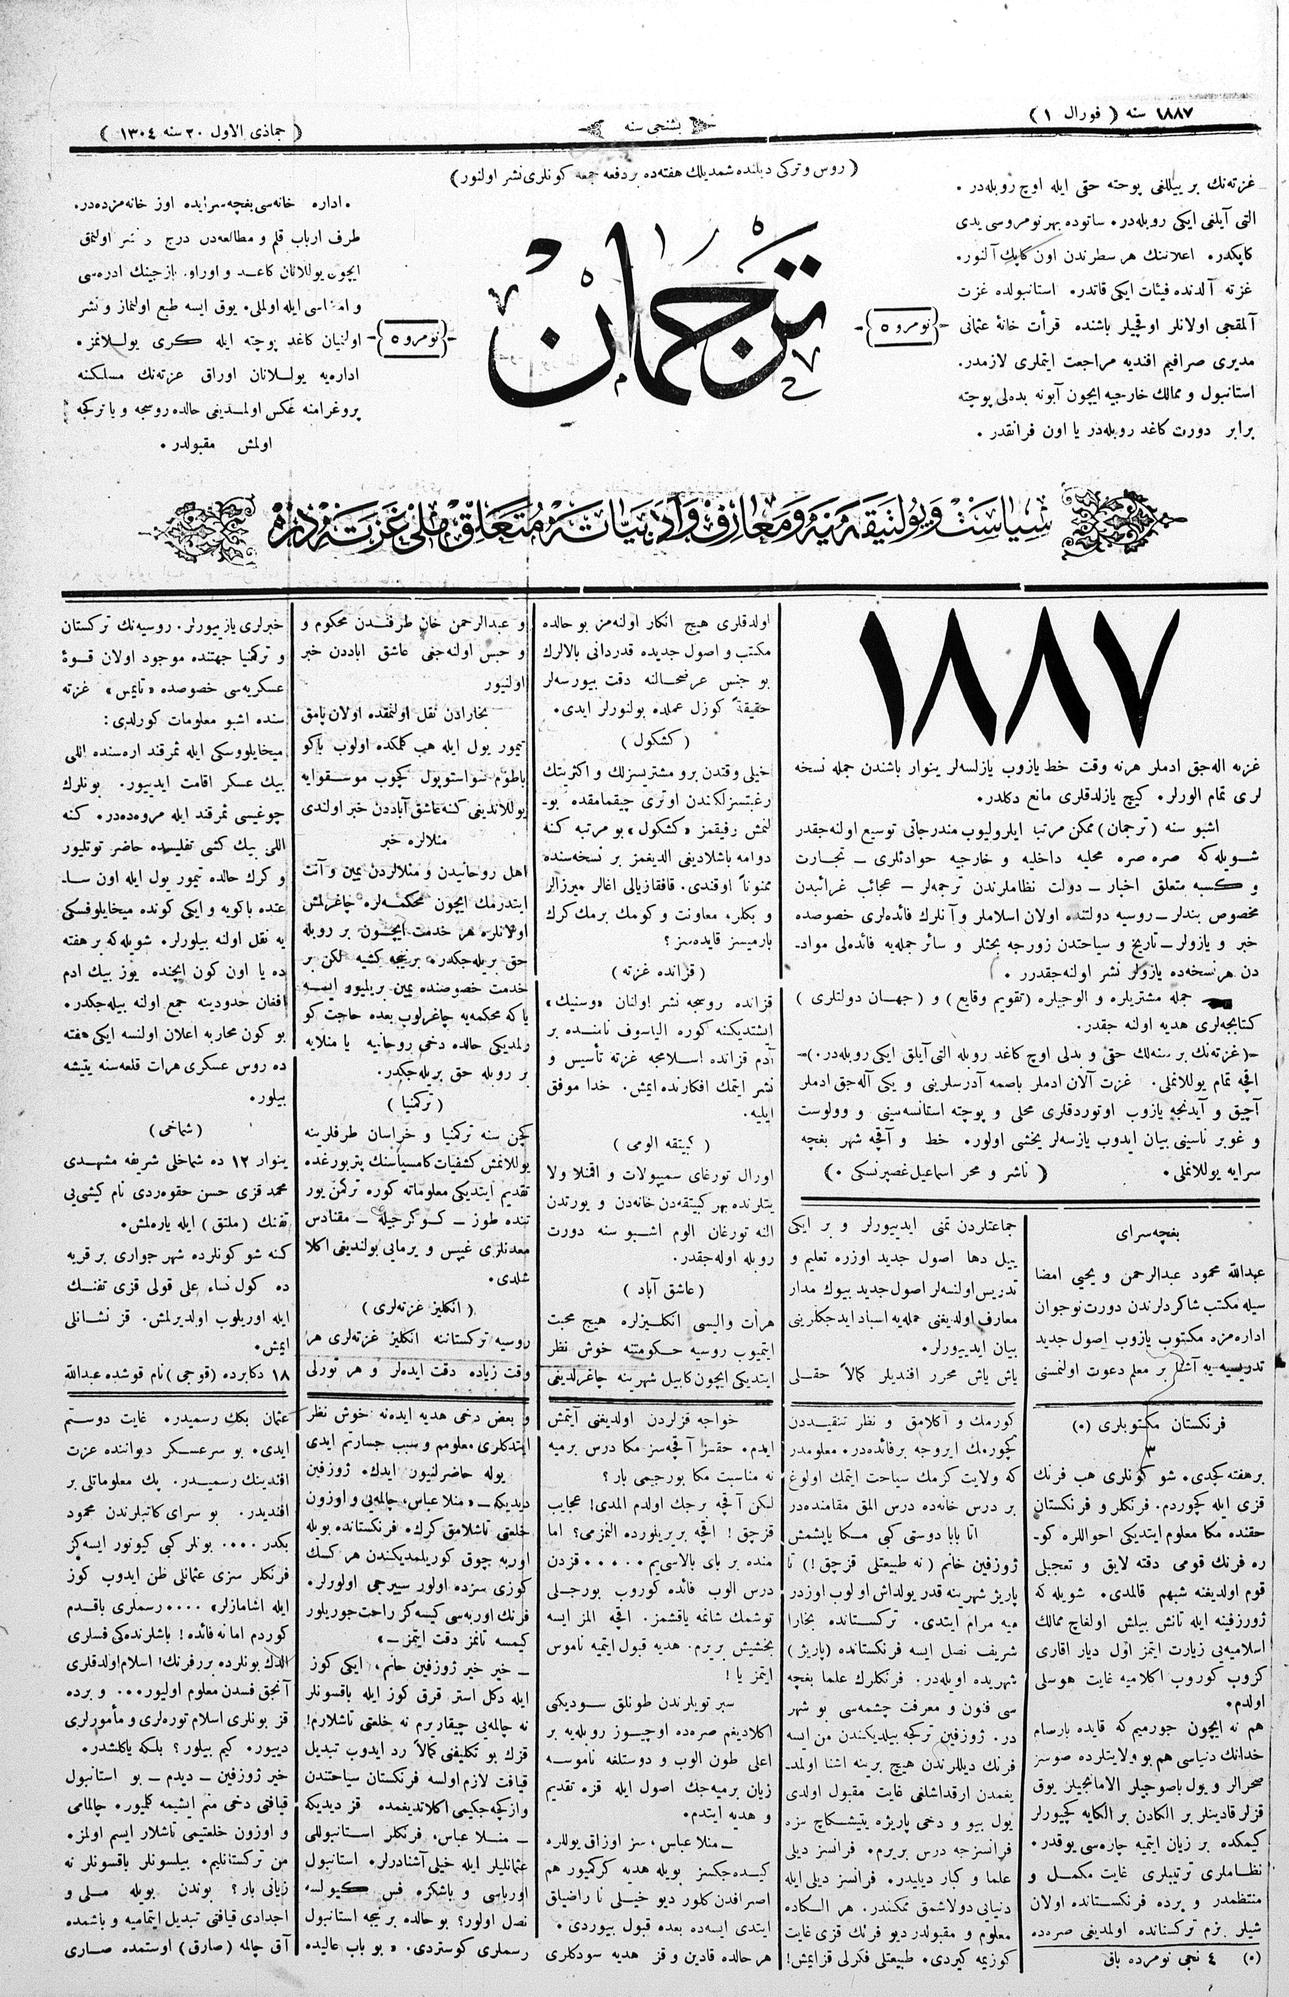 ١٨٨٧ سنه ( فورال ١ )
بشنجی سنه
( جماذی الاول ٢٠ سنه ١٣٠٤ )
( روس و ترکی دیلنده شمدیلك هفته‌ده بردفعه جمعه کونلری نشر اولنور )
غزته‌نك بر ییللغی پوحته حقی ایله اوچ روبله‌در .
التی آیلغی ایکی روبله‌در . ساتوده بهر نومروسی یدی
کاپکدر . اعلاننك هر سطرندن اون کاپك آلنور .
غزته آلدنده فیئات ایکی قاتدر . استانبولده غزت
آلمقجی اولانلر اوقجیلر باشنده قرأت خانهٔ عثمانی
مدیری صرافیم افندیه مراجعت ایتملری لازمدر .
استانبول و ممالك خارجیه ایچون آبونه بدلی پوچته
برابر دورت کاغد روبله‌در یا اون فرانقدر .
نومرو ٥
ترجمان
نومرو ٥
اداره خانه‌سی بغچه سرایده اوز خانه مزده‌در .
طرف ارباب قلم و مطالعه‌دن درج و نشر اولنمق
ایچون یوللانان کاغد و اوراق یازجینك ادره‌سی
و امضاسی ایله اولملی . یوق ایسه طبع اولنماز و نشر
اولنمیان کاغد پوچته ایله کری یوللانمز .
اداره‌یه یوللانان اوراق غزته‌نك مسلکنه
پروغرامنه عکس اولمدیغی حالده روسجه و یا ترکجه
اولمش مقبولدر .
سیاست و پولتیقه‌یه و معارف و ادبیاته متعلق ملی غزته‌در
١٨٨٧
غزته اله‌جق ادملر هر نه وقت خط یازوب یازلسه‌لر ینوار باشندن جمله نسخه
لری تمام الورلر . کیچ یازلدقلری مانع دکلدر .
اشبو سنه ( ترجمان ) ممکن مرتبا ایلرولیوب مندرجاتی توسیع اولنه‌جقدر
شویله‌که صره صره محلیه داخلیه و خارجیه حوادثلری ــ تجارت
و کسبه متعلق اخبار ــ دولت نظاملرندن ترجمه‌لر ــ عجائب غرائبدن
مخصوص بندلر ــ روسیه دولتنده اولان اسلاملر و آنلرك فائده‌لری خصوصده
خبر و یازولر ــ تاریخ و سیاحتدن زورجه بحثلر و سائر جمله‌یه فائده‌لی مواد-
دن هر نسخه‌ده یازولر نشر اولنه جقدرر .
جمله مشتریلره و الوجیلره ( تقویم وقایع ) و ( جهان دولتلری )
کتابجه‌لری هدیه اولنه جقدر .
-( غزته‌نك بر سنه‌لك حقی و بدلی اوچ کاغد روبله التی آیلق ایکی روبله‌در . )-
اقچه تمام یوللانملی . غزت آلان ادملر باصمه آدرسلرینی و یکی آله‌جق ادملر
آچیق و آیدنجه یازوب اوتوردقلری محلی و پوچته استانسه‌سینی و وولوست
و غوبر ناسینی بیان ایدوب یازسه‌لر یخشی اولور . خط و آقچه شهر بغچه
سرایه یوللانملی . ( ناشر و محرر اسماعیل غصپرنسکی )
بغچه سرای
عبدالله محمود عبدالرحمن و یحیی امضا
سیله مکتب شاکردلرندن دورت نوجوان
اداره‌مزه مکتوب یازوب اصول جدید
تدریسیه یه آشنا بر معلم دعوت اولنمسنی
جماعتلردن تمنی ایدیبورلر و بر ایکی
ییل دها اصول جدید اوزره تعلیم و
تدریس اولنسه‌لر اصول جدید بیوك مدار
معارف اولدیغنی جمله‌یه اسباد ایدجکلرینی
بیان ایدیبورلر .
یاش یاش محرر افندیلر کمالاً حقلی
اولدقلری هیچ انکار اولنه‌مز بو حالده
مکتب و اصول جدیده قدردانی بالالرك
بو جنس عرضحالنه دقت بیورسه‌لر
حقیقةً کوزل عملده بولنورلر ایدی .
( کشکول )
خیلی وقتدن برو مشتریسزلك و اکثریتك
رغبتسزلکندن اوتری چیقمامقده بو-
لنمش رفیقمز « کشکول » بو مرتبه کنه
دوامه باشلادیغی الدیغمز بر نسخه‌سنده
ممنوناً اوقندی . قافقازیالی اغالر میرزالر
و بکلر ، معاونت و کومك برمك کرك
یارمیسز قایده‌سز ؟
( قزانده غزته )
قزانده روسجه نشر اولنان « وستیك »
ایشتدیکنه کوره الیاسوف نامنده بر
آدم قزانده اسلامجه غزته تأسیس و
نشر ایتمك افکارنده ایمش . خدا موفق
ایلیه .
( کبیتقه الومی )
اورال تورغای سمیپولات و اقملا ولا
یتلرنده بهر کبیتقه‌دن خانه‌دن و یورتدن
النه تورغان الوم اشبو سنه دورت
روبله اوله جقدر .
( عاشق آباد )
هرات والیسی انکلیزلره هیچ محبت
ایتمیوب روسیه حکومتنه خوش نظر
ایتدیکی ایچون کابیل شهرینه چاغرلدیغی
و عبدالرحمن خان طرفندن محکوم و
و حبس اولنه‌جغی عاشق اباددن خبر
اولنیور
بخارادن نقل اولنمقده اولان پامق
تیمور یول ایله هب کلمکده اولوب باکو
باطوم سواستوپول کچوب موسقوایه
یوللاندیغی کنه عاشق آباددن خبر اولندی
منلالره خبر
اهل روحانیدن و منلالردن یمین و آنت
ایتدرمك ایچون محکمه‌لره چاغرلمش
اولانلره هر خدمت ایچون بر روبله
حق بریله‌جکدر . بریجه کشیه لکن بر
خدمت خصوصنده یمین بریلیو ایسه
یاکه محکمه‌یه چاغرلوب بعده حاجت کو
رلمدیکی حالده دخی روحانیه یا منلایه
بر روبله حق بریله‌جکدر .
( ترکمنیا )
کچن سنه ترکمنیا و خراسان طرفلرینه
یوللانمش کشفیات کامسیاسنك پتربورغده
تقدیم ایتدیکی معلوماته کوره ترکمن یور
تنده طوز ــ کوکرجیله ــ مقنادس
معدنلری غیپس و یرمایی بولندیغی اکلا
شلدی .
( انکلیز غزته‌لری )
روسیه ترکستاننه انکلیز غزته‌لری هر
وقت زیاده دقت ایده‌لر و هر تورلی
خبرلری یازیبورلر . روسیه‌نك ترکستان
و ترکمنیا جهتنده موجود اولان قوهٔ
عسکریه‌سی خصوصده « تایمس » غزته
سنده اشبو معلومات کورلدی :
میخایلووسکی ایله ثمرقند اره‌سنده اللی
بیك عسکر اقامت ایدیبور . بونلرك
چوغیسی ثمرقند ایله مروه‌ده‌در . کنه
اللی بیك کشی تفلیسده حاضر توتلیور
و کرك حالده تیمور یول ایله اون سا-
عتده باکویه و ایکی کونده میخایلوفسکی
یه نقل اولنه بیلورلر . شویله‌که بر هفته
ده یا اون کون ایچنده یوز بیك ادم
افغان حدودینه جمع اولنه بیله‌جکدر .
بو کون محاربه اعلان اولنسه ایکی هفته
ده روس عسکری هرات قلعه‌سنه یتیشه
بیلور .
( شماخی )
ینوار ١٢ ده شماخلی شریفه مشهدی
محمد قزی حسن حقوه‌ردی نام کیشی‌یی
تفنك ( ملتق ) ایله یاره‌لمش .
کنه شو کونلرده شهر جواری بر قریه
ده کول نساء علی قولی قزی تفنك
ایله اوریلوب اولدیرلمش . قز نشانلی
ایمش .
١٨ دکابرده ( قوجی ) نام قوشده عبدالله
فرنکستان مکتوبلری (٥)
٣
بر هفته کچدی . شو کونلری هب فرنك
قزی ایله کچوردم . فرنکلر و فرنکستان
حقنده مکا معلوم ایتدیکی احواللره کو-
ره فرنك قومی دقته لایق و تعجیلی
قوم اولدیغنه شبهم قالمدی . شویله که
ژوزفینه ایله تانش بیلش اولغاچ ممالك
اسلامیه‌یی زیارت ایتمز اول دیار اقاری
کزوب کوروب اکلامیه غایت هوسلی
اولدم .
هم نه ایچون جورمیم که قایده بارسام
خدانك دنیاسی هم بو ولایتلرده صوسز
صحرالر و یول باصوجیلر الامانجیلر یوق
قزلر قادینلر بر الکادن بر الکایه کچیورلر
کیمکده بر زیان ایتمیه چاره‌سی یوقدر .
نظاملری ترتیبلری غایت مکمل و
منتظمدر و یرده فرنکستانده اولان
شیلر بزم ترکستانده اولمدیغی صره‌ده
(٥) ٤ نجی نومرده باق
کورمك و آکلامق و نظر تنقیددن
کچورمك ایروجه برفائده‌در . معلومدر
که ولایت کزمك سیاحت ایتمك اولوغ
بر درس خانه‌ده درس المق مقامنده‌در
اتا بابا دوستی کبی مسکا یاپشمش
ژوزفین خانم ( نه طبیعتلی قزچق ! ) تا
پاریز شهرینه قدر یولداش اولوب اوزدر
میه مرام ایتدی . ترکستانده بخارا
شریف نصل ایسه فرنکستانده ( پاریز )
شهریده اویله‌در . فرنکلرك علما بغچه
سی فنون و معرفت چشمه‌سی بو شهر
در . ژوزفین ترکجه بیلدیکندن من ایسه
فرنك دیللرندن هیچ برینه اشنا اولمد-
یغمدن ارقداشلغی غایت مقبول اولدی
یول بیو و دخی پاریژه یتیشکاچ سزه
فرانسزجه درس بریرم . فرانسز دیلی
علما و کبار دیلیدر . فرانسز دیلی ایله
دنیایی دولاشمق ممکندر . هر الکاده
معلوم و مقبولدر دیو فرنك قزی غایت
کوزیمه کیردی . طبیعتلی فکرلی قز ایمش !
خواجه قزلردن اولدیغنی آیتمش
ایدم . حقمز آقچه‌سز مکا درس برمیه
نه مناسبت مکا بورجیمی بار ؟
لکن آقچه برجك اولدم المدی ! عجایب
قزچق ! اقچه بریلنورده النمزمی ؟ اما
منده بر بای بالاسییم . . . . . قزدن
درس الوب فائده کوروب بورجلی
توشمك شانمه یاقشمز . اقچه المز ایسه
بخشیش بریرم . هدیه قبول ایتمیه ناموس
ایتمز یا !
سبر توبلرندن طونلق سودیکی
اکلادیغم صره‌ده اوچیوز روبله‌یه بر
اعلی طون الوب و دوستلغه ناموسه
زیان برمیه‌جك اصول ایله قزه تقدیم
و هدیه ایتدم .
ــ منلا عباس ، سز اوزاق یوللره
کیده‌جکسز بویله هدیه کرکمیور هم
اصرافدن کلور دیو خیلی نا راضیلق
ایتدی ایسه‌ده بعده قبول بیوردی .
هر حالده قادین و قز هدیه سودکلری
و بعض دخی هدیه ایدنه خوش نظر
ایتدکلری معلومم و سبب جسارتم ایدی
یوله حاضرلنیور ایدك . ژوزفین
دیدیکه ــ « منلا عباس ، چالمه‌یی و اوزون
خلعتی تاشلامق کرك . فرنکستانده بویله
اوربه چوق کوریلمدیکندن هر کسك
کوزی سزده اولور سییرجی اولورلر .
فرنك اوربه‌سی کیسه‌کز راحت جوریلور
کیمسه تانمز دقت ایتمز ــ »
ــ خیر خیر ژوزفین خانم ، ایکی کوز
ایله دکل استر قرق کوز ایله باقسونلر
نه چالمه‌یی چیقاریرم نه خلعتی تاشلارم !
قزك بو تکلیفنی کمالاً رد ایدوب تبدیل
قیافت لازم اولسه فرنکستان سیاحتندن
وازکچه‌جکیمی اکلاتدیغمده قز دیدیکه
ــ منلا عباس ، فرنکلر استانبوللی
عثمانلیلر ایله خیلی آشنادرلر . استانبول
اورباسی و باشکزه فس کیولسه
نصل اولور ؟ بو حالده بریجه استانبول
رسملری کوستردی . « بو باب عالیده
عثمان بکك رسمیدر . غایت دوستم
ایدی . بو سرعسکر دیواننده عزت
افندینك رسمیدر . پك معلوماتلی بر
افندیدر . بو سرای کاتبلرندن محمود
بکدر . . . . بونلر کبی کیونور ایسه‌کز
فرنکلر سزی عثمانلی ظن ایدوب کوز
ایله اشامازلر » . . . . رسملری باقدم
کوردم اما نه فائده ! باشلرنده‌کی فسلری
الدك بونلرده بر فرنك ! اسلام اولدقلری
آنجق فسدن معلوم اولیور . . . و برده
قز بونلری اسلام توره‌لری و مأمورلری
دیبور . کیم بیلور ؟ بلکه یاکلشدر .
خیر ژوزفین ــ دیدم ــ بو استانبول
قیافتی دخی منم ایشیمه کلمیور . چالمامی
و اوزون خلعتیمی تاشلار ایسم اولمز .
من ترکستانلیم . بیلسونلر باقسونلر نه
زیانی بار ؟ بوندن بویله ملی و
اجدادی قیافتی تبدیل ایتمامیه و باشمده
آق چالمه ( صارق ) اوستمده صاری